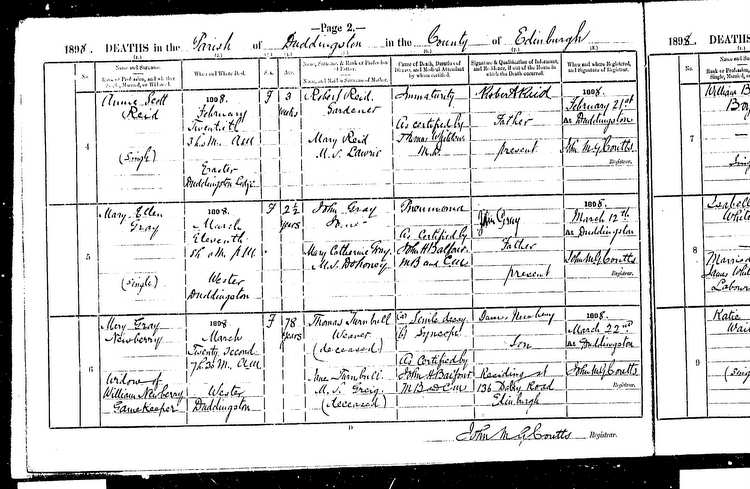 —Page 2.—
1898. DEATHS in the Parish of Duddingston in the County of Edinburgh
No.
Name and Surname.
Rank or Profession, and whether Single, Married, or Widowed.
When and Where Died.
Sex.
Age.
Name, Surname, & Rank or Profession of Father.
Name, and Maiden Surname of Mother.
Cause of Death, Duration of Disease, and Medical Attendant by whom certified.
Signature & Qualification of Informant, and Residence, if out of the House in which the Death occurred.
When and where Registered, and Signature of Registrar.
4
Annie Scott
Reid
(Single)
1898.
February
Twentieth
3h. M. A.M.
Easter
Duddingston Lodge
F
3
weeks
Robert Reid
Gardener
Mary Reid
M.S. Lawrie
Immaturity
As certified by
Thomas
M.D.
Robert Reid
Father
present
1898.
February 21st
At Duddingston
John M. G. Coutts
Registrar.
5
Mary Ellen
Gray
(Single)
1898.
March
Eleventh
5h. 0 M. A.M.
Wester
Duddingston
F
2½
years
John Gray
Mary Catherine Gray
M.S.
Pneumonia
As Certified by
John H Balfour
M B and C.M.
John Gray
Father
present
1898.
March 12th
At Duddingston
John M G Coutts
Registrar.
6
Mary Gray
Newberry
Widow of
William Newberry
Gamekeeper
1898
March
Twenty second
7h. 30 M. A.M.
Wester
Duddingston
F
78
years
Thomas Turnbull
Weaver
(deceased)
Jane Turnbull
M.S. Greig
(deceased)
(a) Senile decay
(b) Syncope
As Certified by
John H Balfour
M B & C M
James Newberry
Son
Residing at
136 Road
Edinburgh
1898.
March 22nd
At Duddingston
John M G Coutts
Registrar.
John M G Coutts Registrar.
1898. DEATHS
No.
Name and
Rank or Profession
Single, Married
7
William B
8
Isabell
White
James Whit
Labour
9
Katie
(Sing